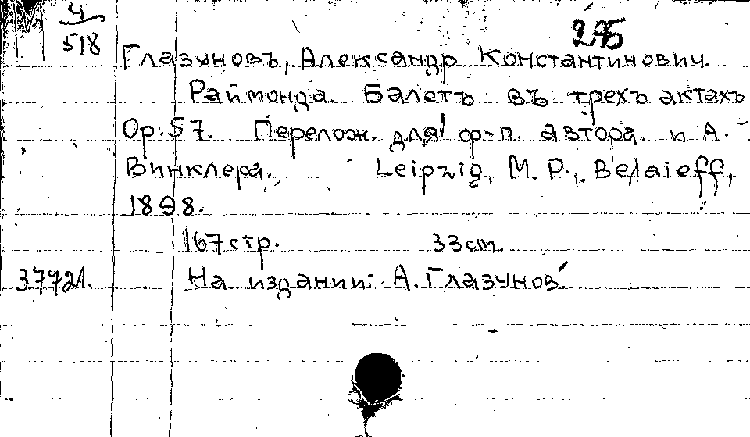 4
518
295
Глазуновъ, Александр Константинович.
Раймонда. Балетъ въ трехъ актахъ
Op. 57. Перелож. для ф-п. автора и А.
Винклера. Leipzig, M. P. Belaieff,
1898.
167 стр. 33 cm.
37721. На издании: А. Глазунов